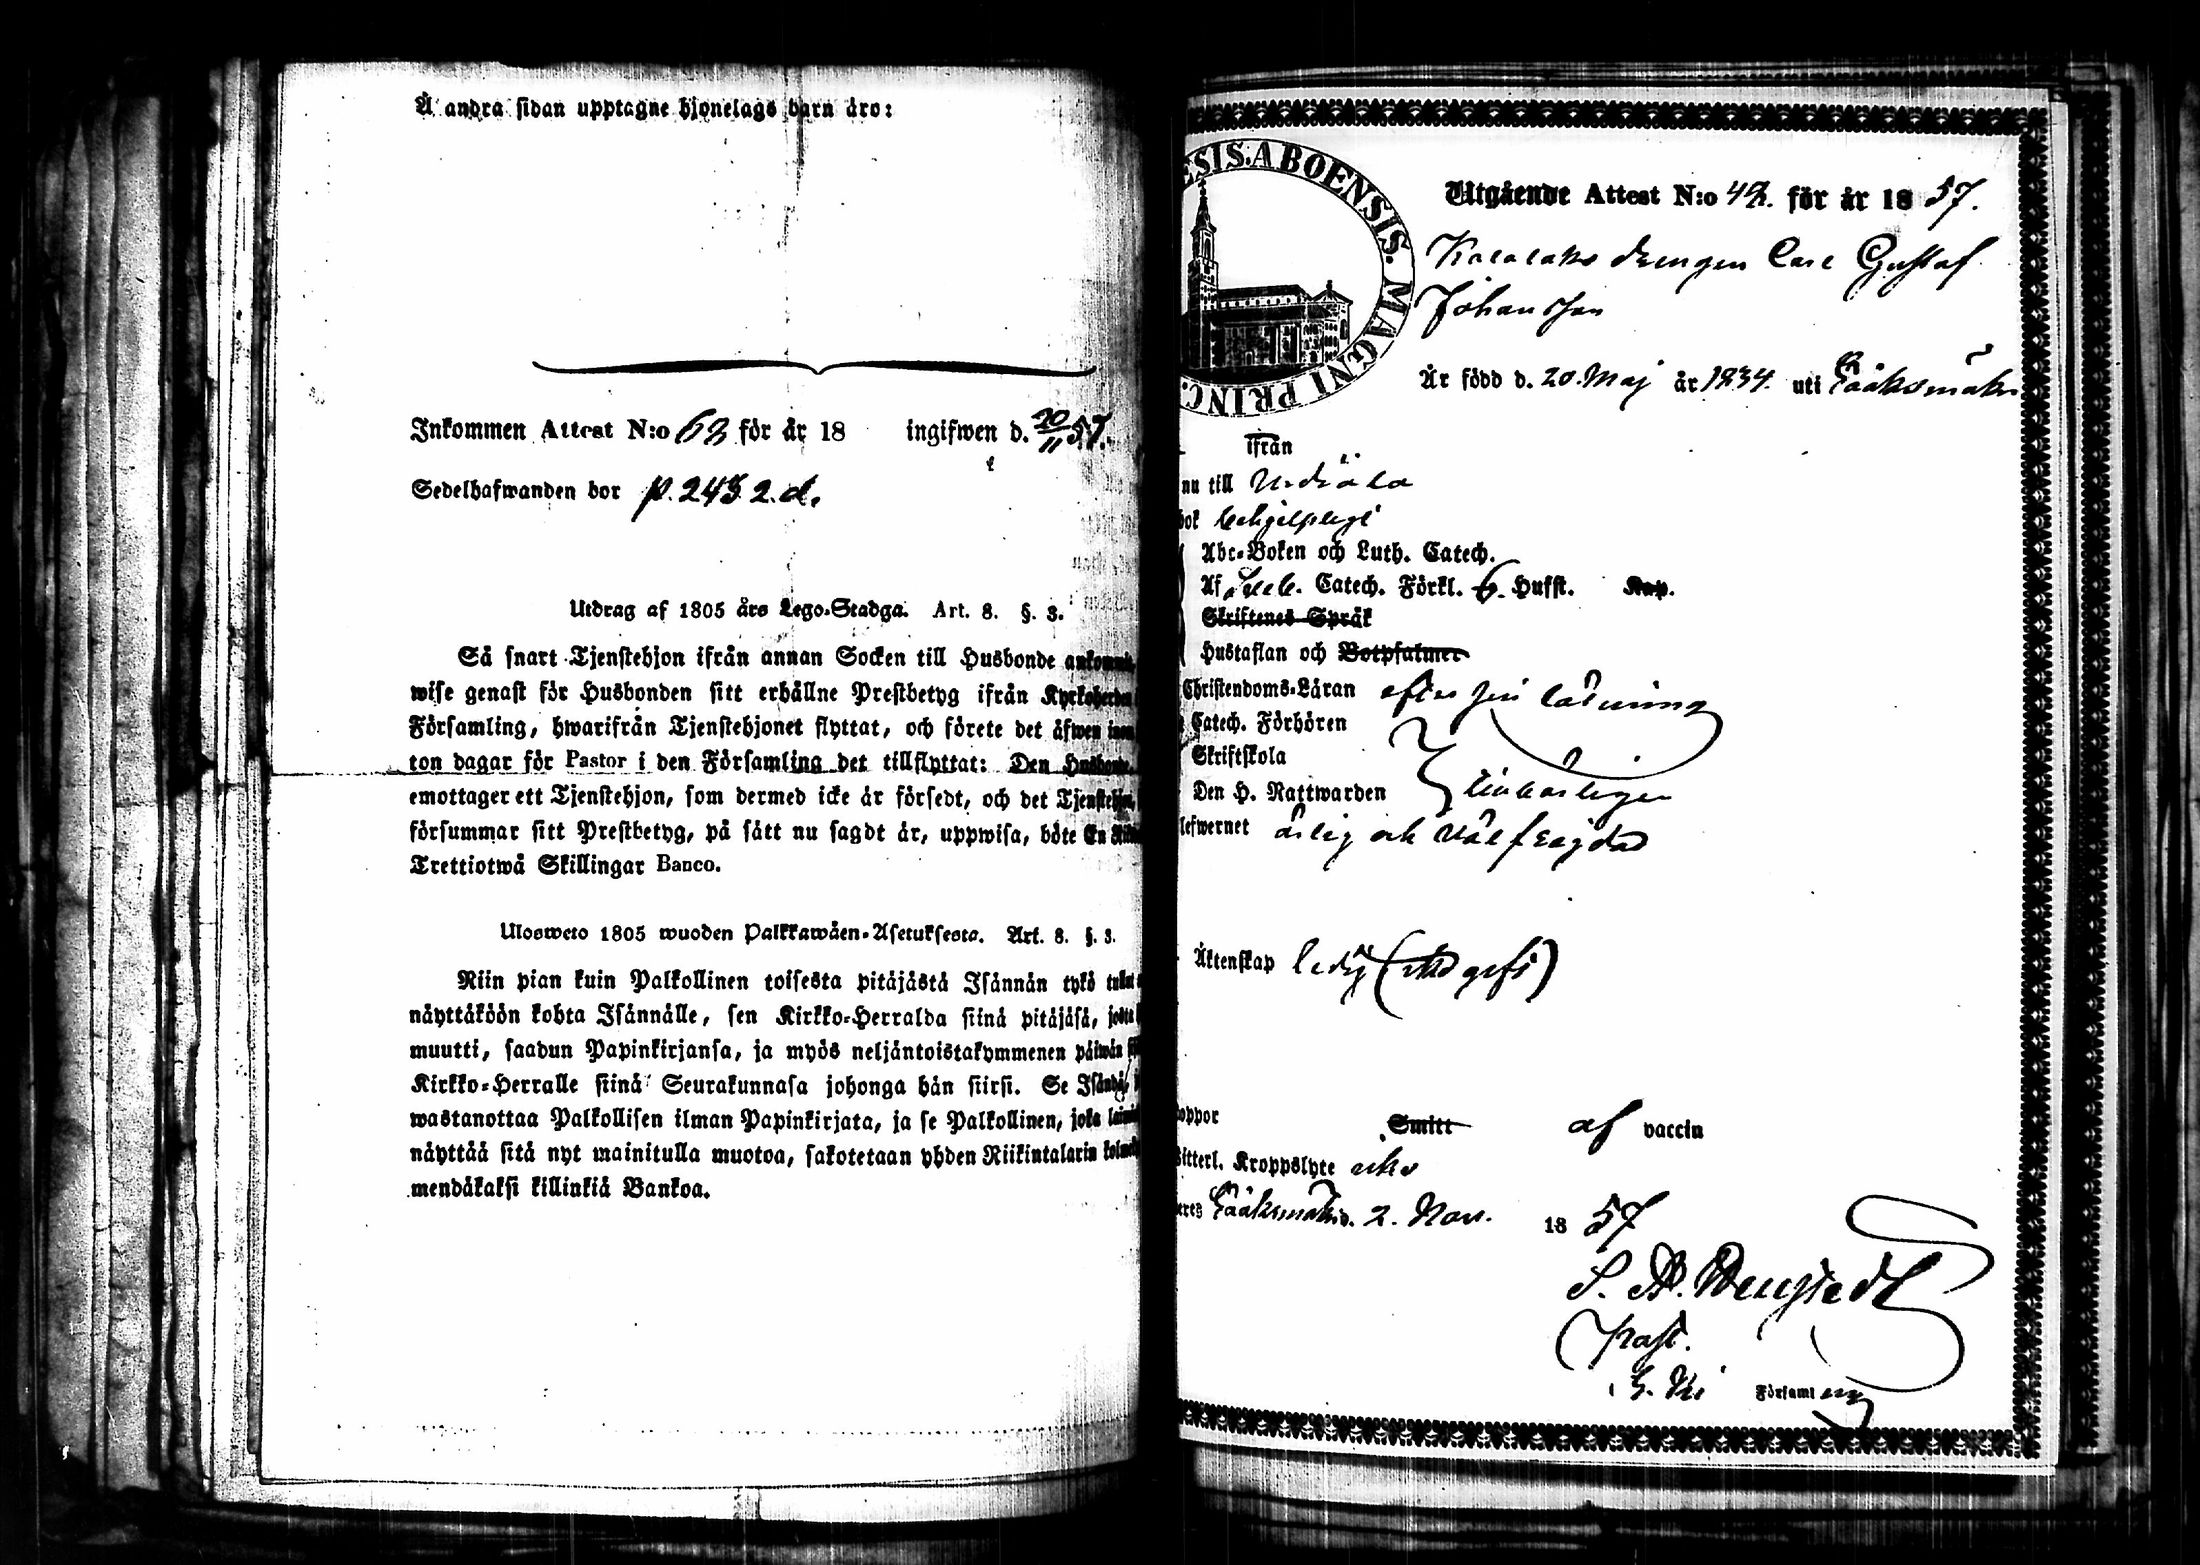 Å andra sidan upptagne hjonelags barn äro:
Inkommen Attest N:o 62 för år 18 ingifwen d. 20/11 57.
Sedelhafwanden bor p. 243 2. d.
Utdrag af 1805 års Lego-Stadga. Art. 8. §. 3.
Så snart Tjenstehjon ifrån annan Socken till Husbonde
wise genast för Husbonden sitt erhållne Prestbetyg ifrån
Församling, hwarifrån Tjenstehjonet flyttat, och förete det äfwen
ton dagar för Pastor i den Församling det tillflyttat: Den
emottager ett Tjenstehjon, som dermed icke är försedt, och det
försummar sitt Prestbetyg, på sätt nu sagdt är, uppwisa, böte En
Trettiotwå Skillingar Banco.
Ulosweto 1805 wuoden Palkkawäen-Asetuksesta. Art. 8. §. 3.
Niin pian kuin Palkollinen toisesta pitäjästä Isännän tykö
näyttäköön kohta Isännälle, sen Kirkko-Herralda siinä pitäjäsä,
muutti, saadun Papinkirjansa, ja myös neljäntoistakymmenen päiwän
Kirkko-Herralle siinä Seurakunnasa johonga hän siirsi. Se
wastanottaa Palkollisen ilman Papinkirjata, ja se Palkollinen, joka
näyttää sitä nyt mainitulla muotoa, sakotetaan yhden Riikintalarin
mendäkaksi killinkiä Bankoa.
ESIS. ABOENSIS. MAGNI PRINC.
Utgående Attest N:o 42. för år 18 57.
drengen Carl Gustaf
Johansson
Är född d. 20. Maj år 1834. uti Sääksmäki
ifrån
nu till Urdiala
bok behjelpligt
Abc-Boken och Luth. Catech.
Af Catech. Förkl. 6. Hufst. Kap.
Skriftenes Språk
Hustaflan och Botpsalmer
Christendoms-Läran efter sin läsning
Catech. Förhören
Skriftskola
Den H. Nattwarden
lefwernet ärlig och välfrägdad
Äktenskap ledig
koppor Smitt af vaccin
witterl. Kroppslyte utan
Sääksmäki d. 2. Nov. 18 57
Past.
Församl